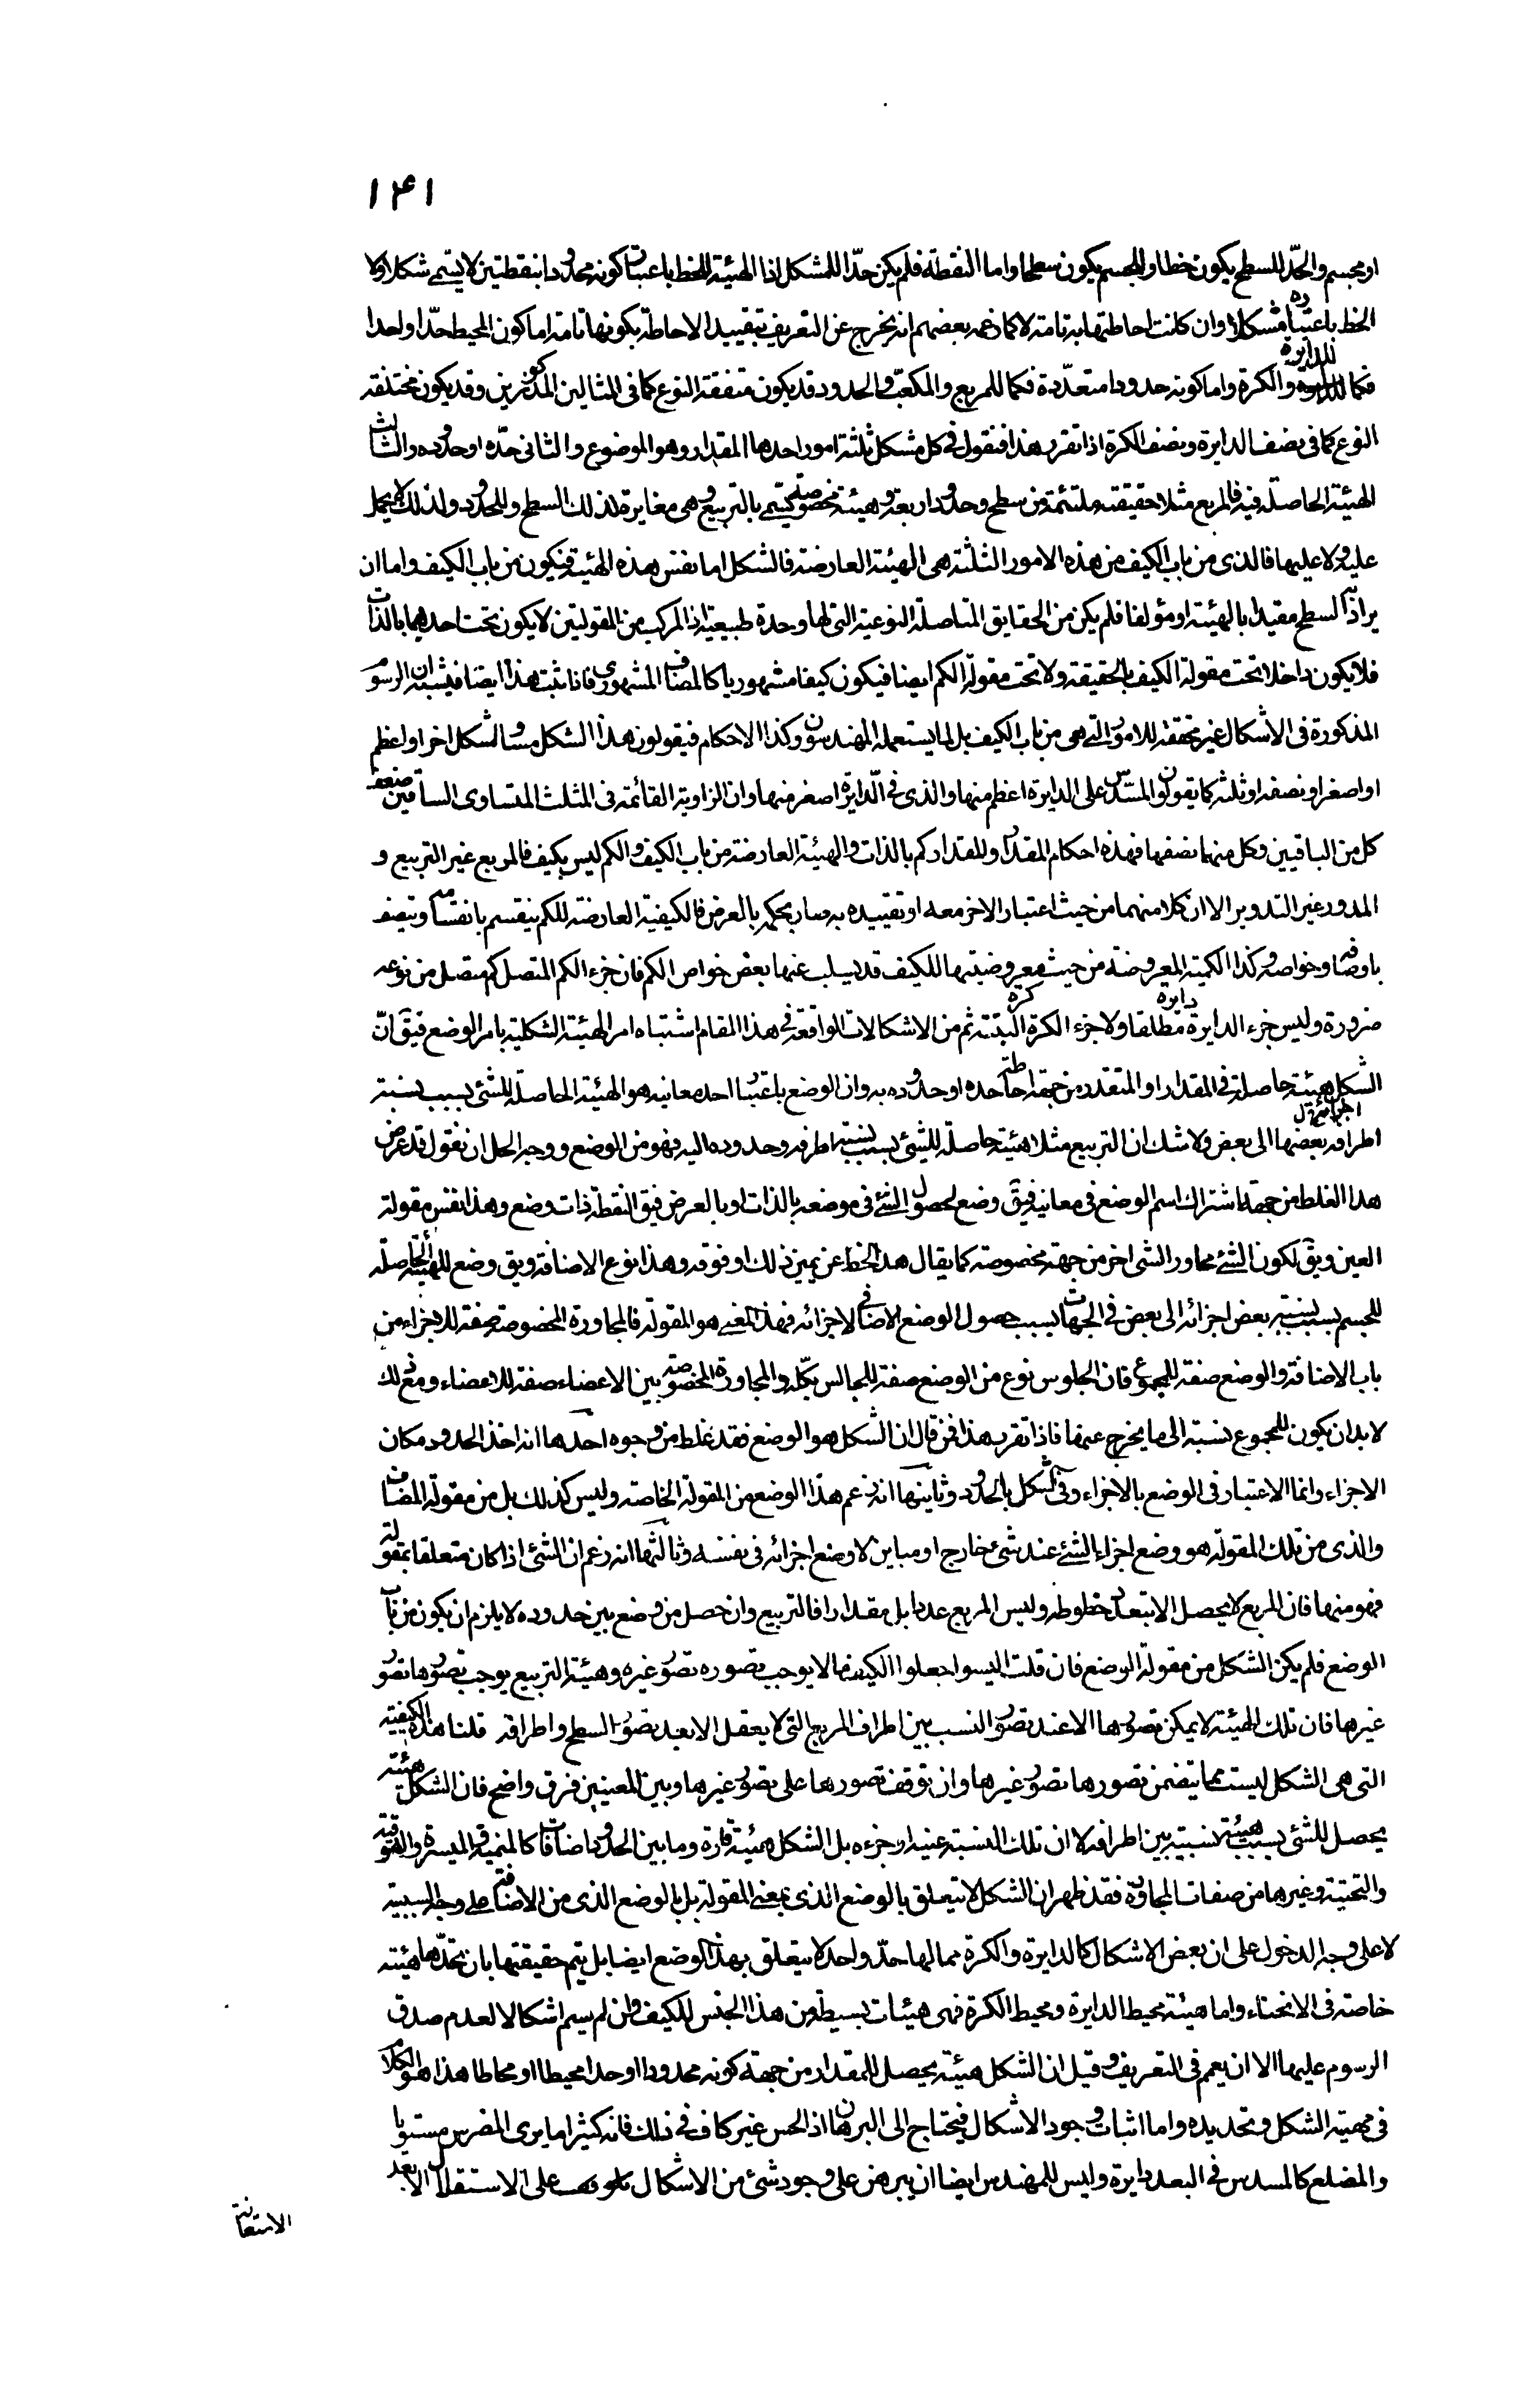 ١٤١
او مجسم والحدّ للسطح يكون خطا وللجسم يكون سطحا واما النقطة فلم يكن حدّا للمشكل اذ الهيئة للخط باعتبار كونه محدودا بنقطتين لا يسمّى شكلا ولا
الخط باعتباره مشكلا وان كانت احاطتها به تامة لا كما زعمه بعضهم انه يخرج عن التعريف بتقييد الاحاطة بكونها تامة اما كون المحيط حدّا واحدا
فكما للدايرة والكرة واما كونه حدودا متعدّدة فكما للمربع والمكعّب والحدود قد يكون متفقة النوع كما فى المثالين المذكورين وقد يكون مختلفة
النوع كما فى نصف الدايرة ونصف الكرة اذا تقرر هذا فنقول فى كل مشكل ثلثة امور احدها المقدار وهو الموضوع والثانى حدّه او حدوده والثالث
الهيئة الحاصلة فيه فالمربع مثلا حقيقته ملتئمة من سطح وحدود اربعة وهيئة مخصوصة يسمّى بالتربيع وهى مغايرة لذلك السطح وللحدود ولذلك لا يحمل
عليه ولا عليها فالذى من باب الكيف من هذه الامور الثلثة هى الهيئة العارضة فالشكل اما نفس هذه الهيئة فيكون من باب الكيف واما ان
يراد به السطح مقيدا بالهيئة او مؤلفا فلم يكن من الحقايق المتاصلة النوعية التى لها وحدة طبيعية اذ المركب من المقولتين لا يكون تحت احديهما بالذات
فلا يكون داخلا تحت مقولة الكيف بالحقيقة ولا تحت مقولة الكم ايضا فيكون كيفا مشهوريا كالمضاف المشهورى فاذا ثبت هذا ايضا فيشبه ان الرسوم
المذكورة فى الاشكال غير محققة للامور التى هى من باب الكيف بل لما يستعمله المهندسون وكذا الاحكام فيقولون هذا الشكل مساو لشكل اخر او اعظم
او اصغر او نصفه او ثلثه كما يقولون المسدّس على الدايرة اعظم منها والذى فى الدايرة اصغر منها وان الزاوية القائمة فى المثلث المتساوى الساقين ضعف
كل من الباقيين وكل منهما نصفها فهذه احكام المقدار وللمقدار كم بالذات والهيئة العارضة من باب الكيف والكم ليس بكيف فالمربع غير التربيع و
المدور غير التدوير الا ان كلا منهما من حيث اعتبار الاخر معه او تقييده به صار بحكمه بالعرض فالكيفية العارضة للكم ينقسم بانقسامه ويتصف
باوصافه وخواصه وكذا الكمية المعروضة من حيث معروضيتها للكيف قد يسلب عنها بعض خواص الكم فان جزء الكم المتصل كم متصل من نوعه
ضرورة وليس جزء الدايرة دايرة مطلقا ولا جزء الكرة كرة البتة ثم من الاشكالات الواقعة فى هذا المقام اشتباه امر الهيئة الشكلية بامر الوضع فيق انّ
الشكل هيئة حاصلة فى المقدار او المتقدر من جهة احاطة حده او حدوده به وان الوضع باعتبار احد معانيه هو الهيئة الحاصلة للشئ بسبب نسبة
اطرافه بعضها الى بعض ولا شك ان التربيع مثلا هيئة حاصلة للشئ بسبب نسبة اطرفه وحدوده اليه فهو من الوضع ووجه الحل ان نقول قد عرض
هذا الغلط من جهة اشتراك اسم الوضع فى معانيه فيق وضع لحصول الشئ فى موضعه بالذات او بالعرض فيق النقطة ذات وضع وهذا نفس مقولة
العين ويق لكون الشئ مجاور الشئ اخر من جهة مخصوصة كما يقال هذا الخط عن يمين ذلك او فوقه وهذا نوع الاضافة ويق وضع للهيئة الحاصلة
للجسم بسبب نسبة بعض اجزائه الى بعض فى الجهات بسبب حصول الوضع الاضافى لاجزائه فهذا المعنى هو المقولة فالمجاورة المخصوصة صفة للاجزاء من
باب الاضافة والوضع صفة للمجموع فان الجلوس نوع من الوضع صفة للجالس بكله والمجاورة المخصوصة بين الاعضاء صفة للاعضاء ومع ذلك
لا بد ان يكون للمجموع نسبة الى ما يخرج عنها فاذا تقرر هذا فمن قال ان الشكل هو الوضع فقد غلط من وجوه احدها انه اخذ الحدود مكان
الاجزاء وانما الاعتبار فى الوضع بالاجزاء وفى الشكل بالحدود وثانيها انه زعم هذا الوضع من المقولة الخاصة وليس كذلك بل من مقولة المضاف
والذى من تلك المقولة هو وضع اجزاء الشئ عند شئ خارج او مباين لا وضع اجزائه فى نفسه وثالثها انه زعم ان الشئ اذا كان متعلقا بمقولة
فهو منها فان المربع لا يحصل الا بتعدد خطوطه وليس المربع عددا بل مقدارا فالتربيع وان حصل من وضع بين حدوده لا يلزم ان يكون من باب
الوضع فلم يكن الشكل من مقولة الوضع فان قلت اليسوا جعلوا الكيف ما لا يوجب تصوره تصور غيره وهيئة التربيع يوجب تصورها تصور
غيرها فان تلك الهيئة لا يمكن تصورها الا عند تصور النسب بين اطراف المربع التى لا يعقل الا بعد تصور السطح واطرافه قلنا هذه الكيفية
التى هى الشكل ليست مما يتضمن تصورها تصور غيرها وان توقف تصورها على تصور غيرها وبين المعنيين فرق واضح فان الشكل هيئة
يحصل للشئ بسبب هيئة نسبية بين اطرافه لا ان تلك النسبة عينه او جزءه بل الشكل هيئة قارة وما بين الحدود اضافات كالميمنة والميسرة والفوقية
والتحتية وغيرها من صفات المجاورة فقد ظهر ان الشكل لا يتعلق بالوضع الذى بمعنى المقولة بل بالوضع الذى من الاضافة على وجه السببية
لا على وجه الدخول على ان بعض الاشكال كالدايرة والكرة مما لها حدّ واحد لا يتعلق بهذا الوضع ايضا بل يتم حقيقتها بان يحدّها هيئة
خاصة فى الانحناء واما هيئة محيط الدايرة ومحيط الكرة فهى هيئات بسيطة من هذا الجنس للكيف وان لم يسم اشكالا لعدم صدق
الرسوم عليها الا ان يعمم فى التعريف وقيل ان الشكل هيئة يحصل للمقدار من جهة كونه محدودا او حدا محيطا او محاطا هذا هو الكلام
فى مهية الشكل وتحديده واما اثبات وجود الاشكال فيحتاج الى البرهان اذ الحس غير كاف فى ذلك فانه كثيرا ما يرى المضرس مستويا
والمضلع كالمسدس فى البعد دايرة وليس للمهندس ايضا ان يبرهن على وجود شئ من الاشكال على الاستقلال الا بعد
الاستعانة